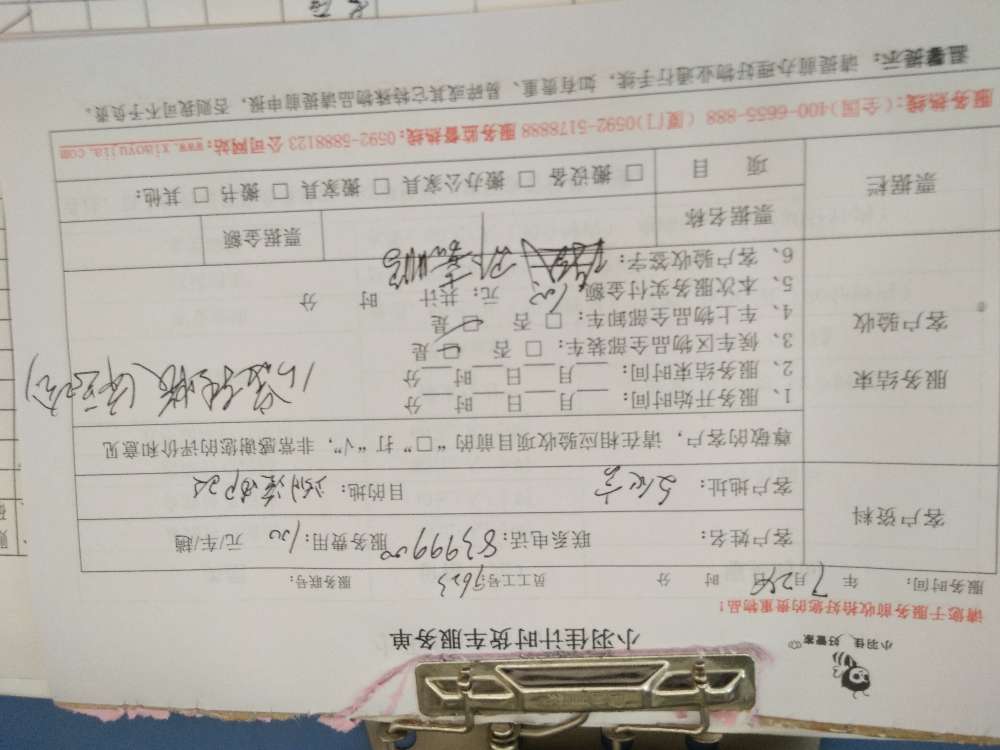 小羽佳 好管家
小羽佳计时货车服务单
请您于服务前收拾好您的贵重物品！
服务时间： 年 7月29日 时 分 员工工号：7623 服务联号：
客户资料
客户姓名： 联系电话： 服务费用：100 元/车/趟
客户地址： 目的地：
尊敬的客户，请在相应验收项目前的“□”打“√”，非常感谢您的评价和意见
服务结束
客户验收
1、服务开始时间：___月___日___时___分
2、服务结束时间：___月___日___时___分
3、候车区物品全部装车：□ 否 □ 是
4、车上物品全部卸车：□ 否 □ 是
5、本次服务实付金额：100 元；共计 时 分
6、客户验收签字：
票据栏
票据名称 票据金额
项 目 □ 搬设备 □ 搬办公家具 □ 搬家具 □ 搬书 □ 其他：
服务热线：(全国)400-6655-888 (厦门)0592-5178888 服务监督热线：0592-5888123 公司网站：www.xiaoyujia.com
温馨提示：请提前办理好物业通行手续，如有贵重、易碎或其它特殊物品请提前申报，否则我司不予负责。